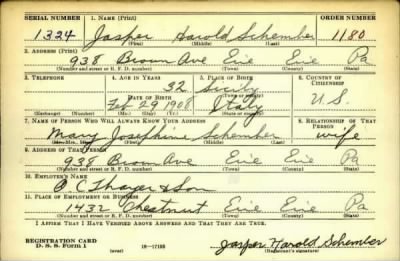 SERIAL NUMBER 1. NAME (Print) ORDER NUMBER
1324 Jasper Harold Schember 1180
(First) (Middle) (Last)
2. ADDRESS (Print)
938 Brown Ave Erie Erie Pa
(Number and street or R. F. D. number) (Town) (County) (State)
3. TELEPHONE 4. AGE IN YEARS 5. PLACE OF BIRTH 6. COUNTRY OF CITIZENSHIP
32 Sicily
DATE OF BIRTH
Feb 29 1908 Italy U.S.
(Exchange) (Number) (Mo.) (Day) (Yr.) (State or country)
7. NAME OF PERSON WHO WILL ALWAYS KNOW YOUR ADDRESS 8. RELATIONSHIP OF THAT PERSON
Mary Josephine Schember wife
(Mr., Mrs., Miss) (First) (Middle) (Last)
9. ADDRESS OF THAT PERSON
938 Brown Ave Erie Erie Pa
(Number and street or R. F. D. number) (Town) (County) (State)
10. EMPLOYER'S NAME
O C Thayer & Son
11. PLACE OF EMPLOYMENT OR BUSINESS
1432 Chestnut Erie Erie Pa
(Number and street or R. F. D. number) (Town) (County) (State)
I AFFIRM THAT I HAVE VERIFIED ABOVE ANSWERS AND THAT THEY ARE TRUE.
REGISTRATION CARD
D. S. S. Form 1 (over) 16—17105 Jasper Harold Schember
(Registrant's signature)